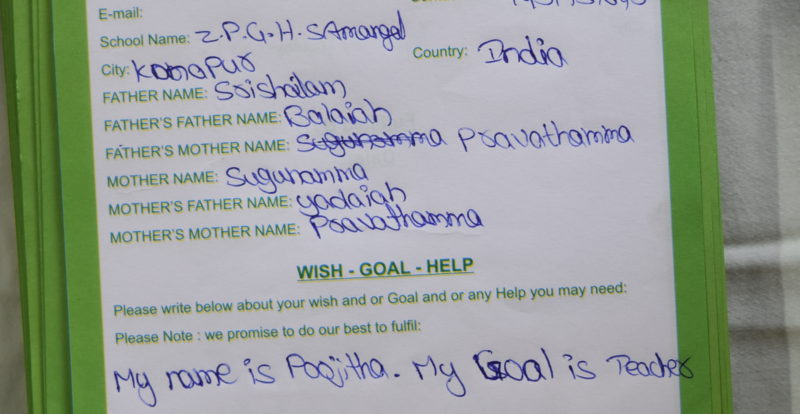 E-mail:
School Name: Z.P.G.H.S Amangal
City: Konapur Country: India
FATHER NAME: Srishailam
FATHER'S FATHER NAME: Balaiah
FATHER'S MOTHER NAME: Sugunamma Pravathamma
MOTHER NAME: Sugunamma
MOTHER'S FATHER NAME: yadaiah
MOTHER'S MOTHER NAME: Pravathamma
WISH - GOAL - HELP
Please write below about your wish and or Goal and or any Help you may need:
Please Note : we promise to do our best to fulfil:
My name is Poojitha. My Goal is Teacher